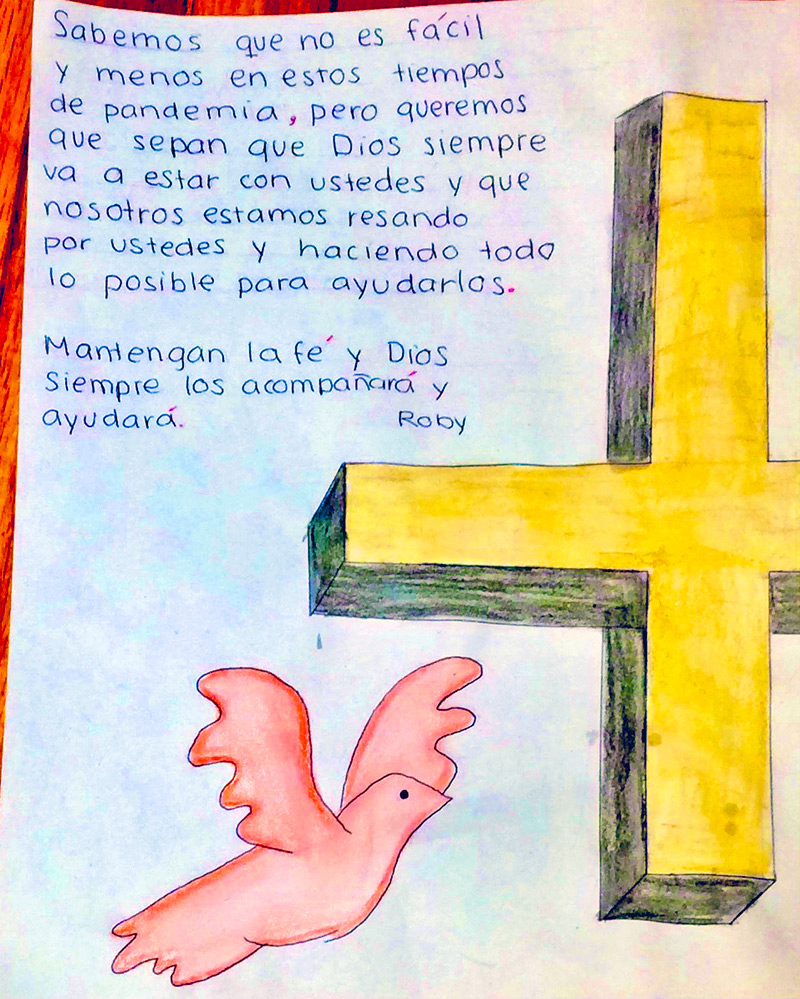 Sabemos que no es fácil
y menos en estos tiempos
de pandemia, pero queremos
que sepan que Dios siempre
va a estar con ustedes y que
nosotros estamos resando
por ustedes y haciendo todo
lo posible para ayudarlos.
Mantengan la fé y Dios
siempre los acompañará y
ayudará.
Roby